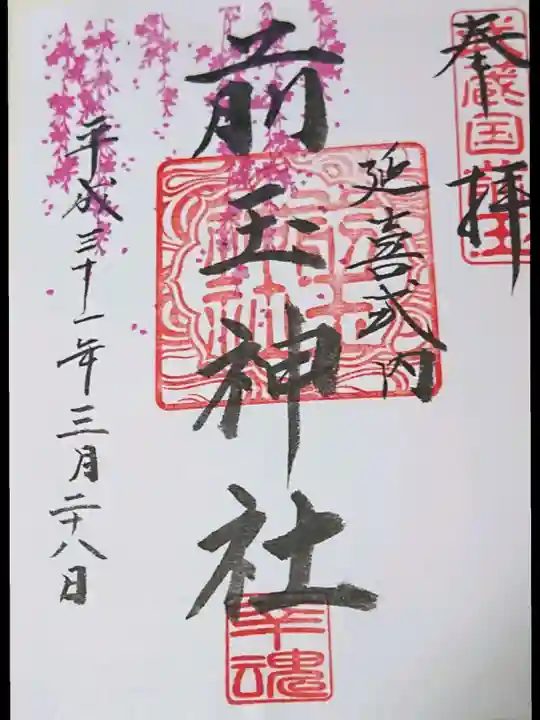 奉拝
武蔵国前玉
延喜式内
前玉神社
幸魂
平成三十一年三月二十八日